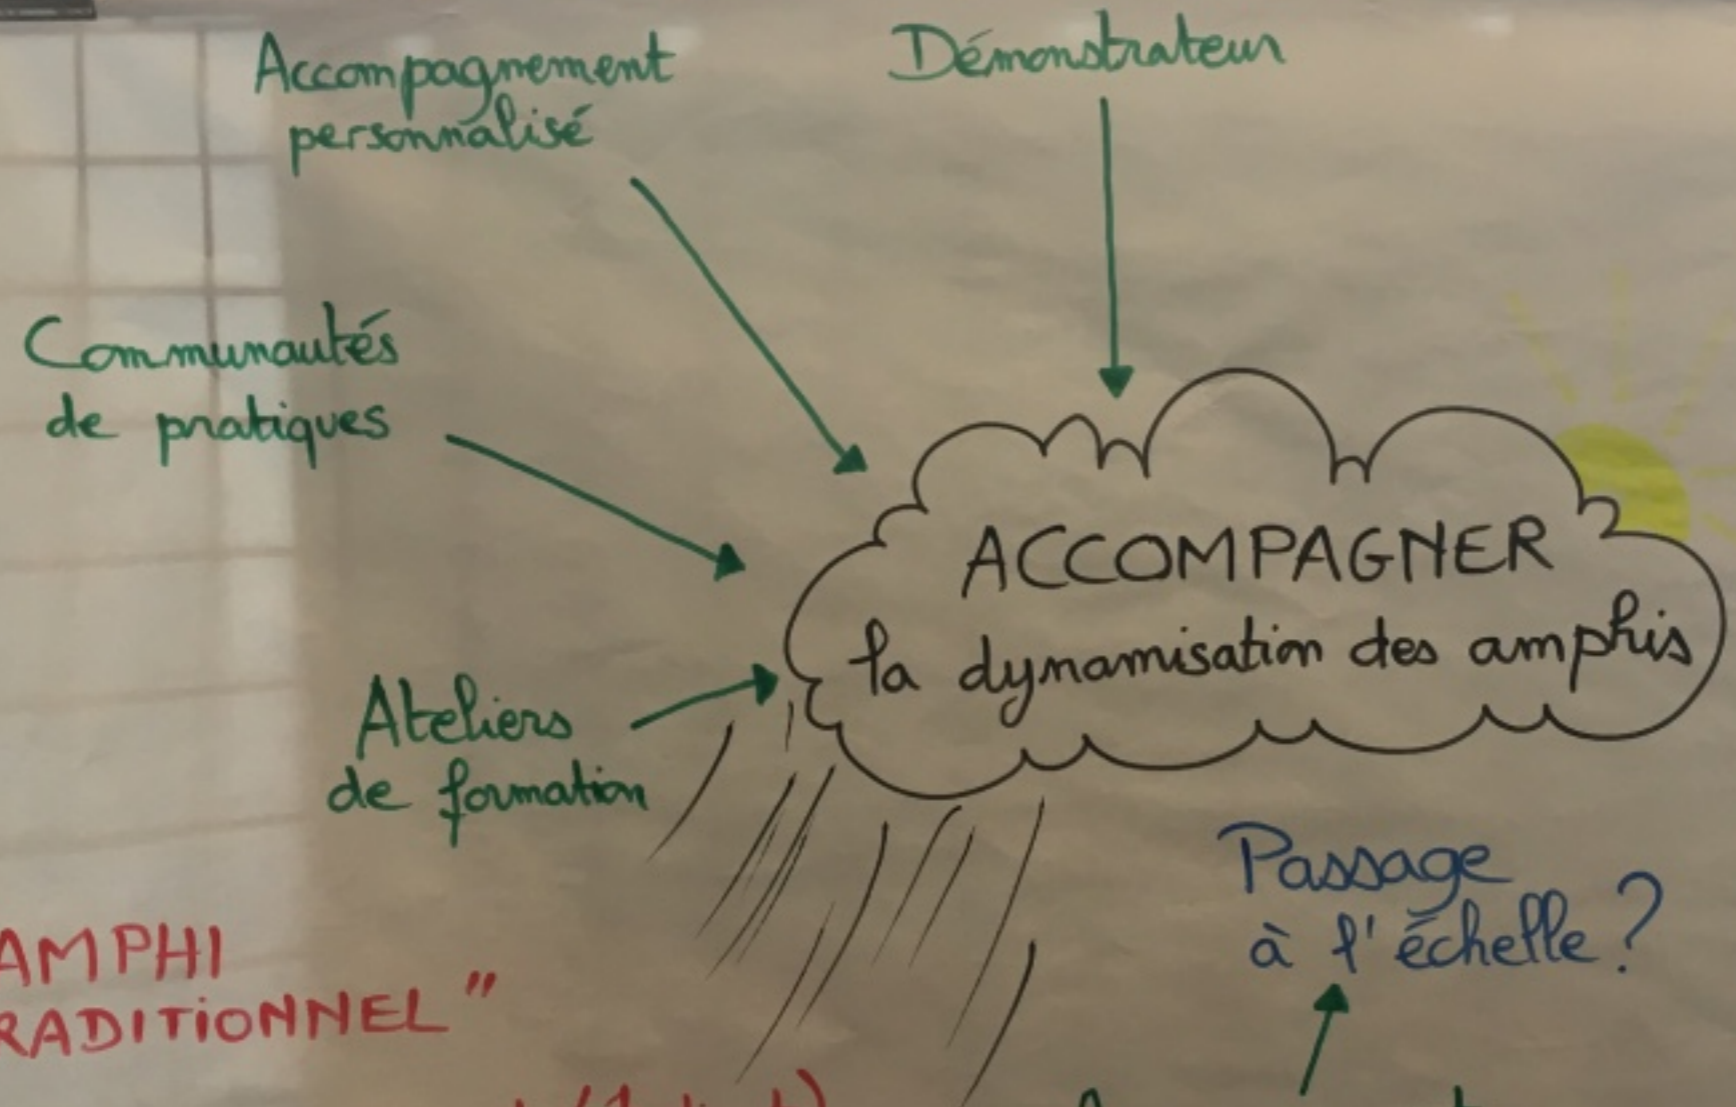 Accompagnement
personnalisé
Démonstrateur
Communautés
de pratiques
ACCOMPAGNER
la dynamisation des amphis
Ateliers
de formation
Passage
à l'échelle ?
AMPHI
RADITIONNEL "